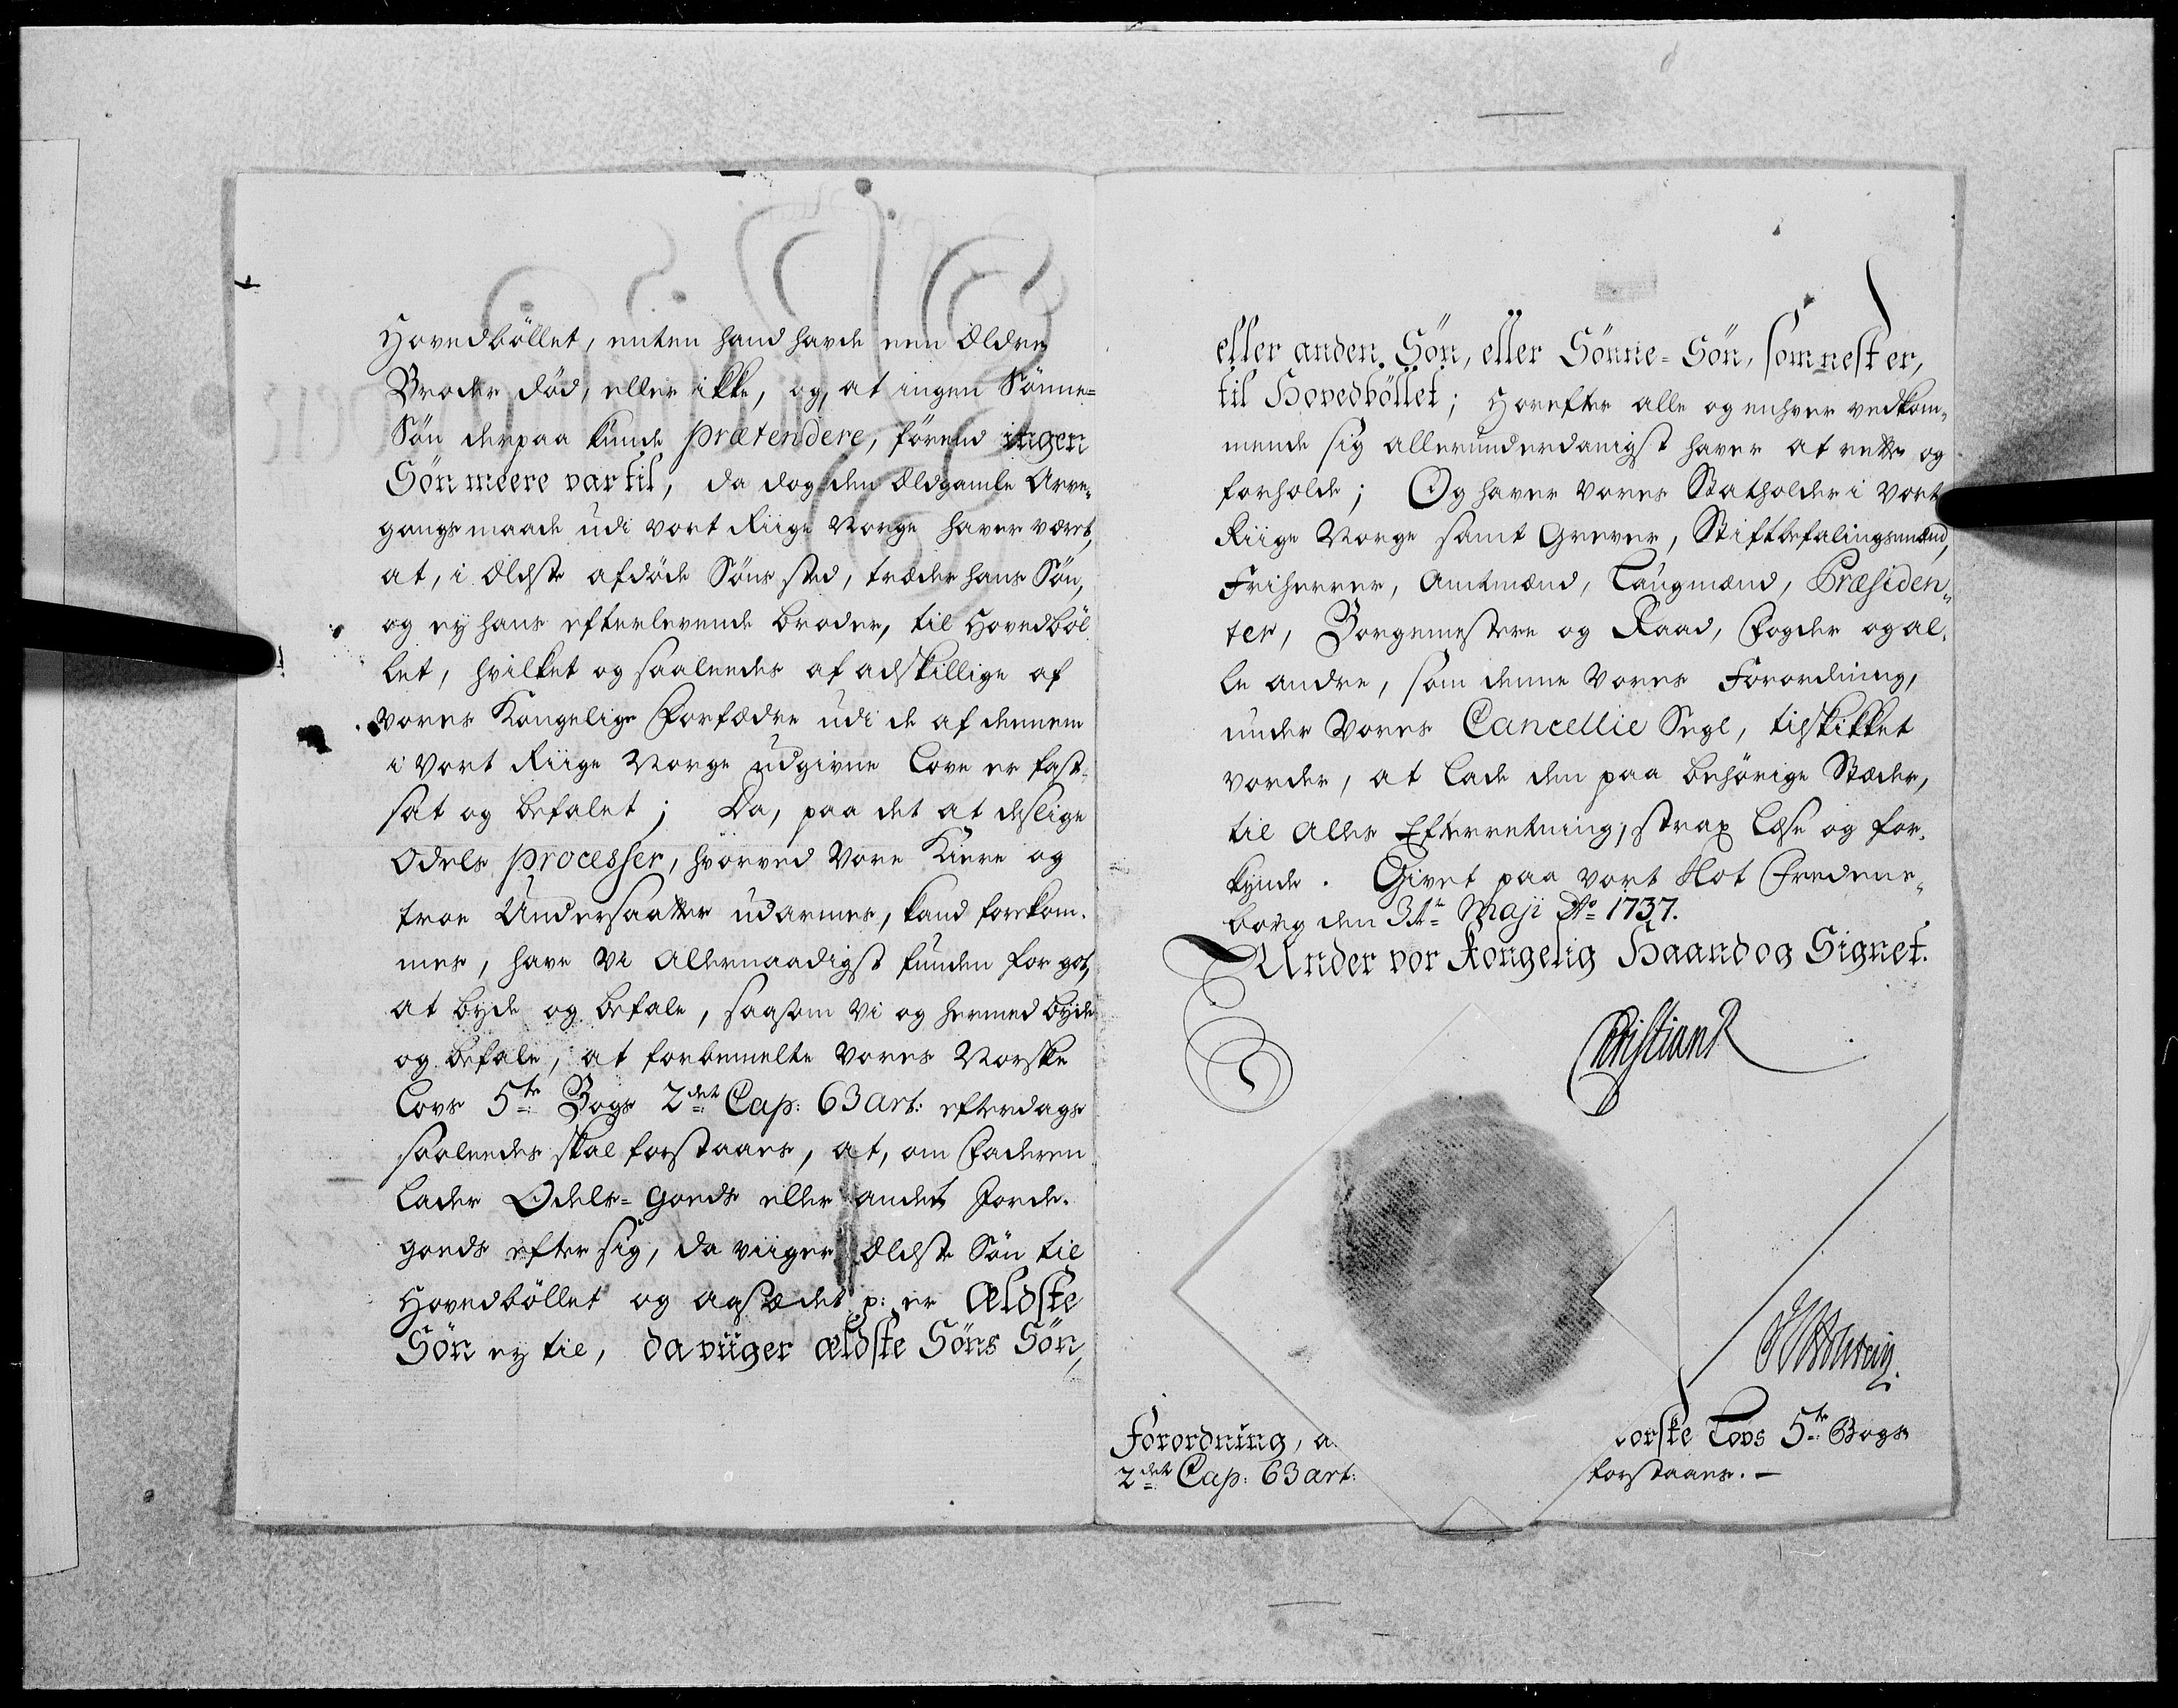 Hovedböllet, enten hand havde een Ældre
Broder död, eller ikke, og, at ingen Sönne=
Søn derpaa kunde prætendere, førend ingen
Søn meere var til, da dog den Ældgamle Arve-
gangs maade udi vort Riige Norge haver været,
at, i Ældste afdöde Søns sted, træder hans Søn,
og ey hans efterlevende broder, til Hovedböl-
let, hvilket og saaledes af adskillige af
Vores Kongelige Forfædre udi de af dennem
i Vort Riige Norge udgivne Love er fast-
sat og befalet; Da, paa det at deslige
Odels processer, hvorved Vore Kiere og
troe Undersaatter udarmes, kand forekom-
mes, have Vi Allernaadigst funden for got,
at byde og befale, saasom Vi og hermed byde
og befale, at forbemelte Vores Norske
Lovs 5te Bogs 2det Cap: 63 art: efterdags
saaledes skal forstaaes, at, om Faderen
lader Odels= Goeds eller andet Jorde-
goeds efter sig, da viiger Ældste Søn til
Hovedböllet og Aasædet p: er Ældste
Sön ey til, da viiger ældste Söns Sön,
eller anden Sön, eller Sönne=Sön, som nest er,
til Hovedböllet; Horefter alle og enhver vedkom-
mende sig allerunderdanigst haver at rette og
forholde; Og haver Vores Statholder i Vort
Riige Norge samt Grever, Stiftbefalingsmænd,
Friherrer, Amtmænd, Laugmænd, Præsiden-
ter, Borgemestere og Raad, Fogder og al-
le andre, som denne Vores Forordning,
under Vores Cancellie Segl, tilskikket
vorder, at lade den paa behörige Stæder,
til Alles Efterretning, strax læse og for-
kynde. Givet paa Vort Slot Fredens-
borg den 31te Maji Ao 1737.
Under vor Kongelig Haand og Signet.
Christian R
JLHolstein.
Forordning, a orske Lovs 5te Bogs
2det Cap: 63 art: forstaaes.